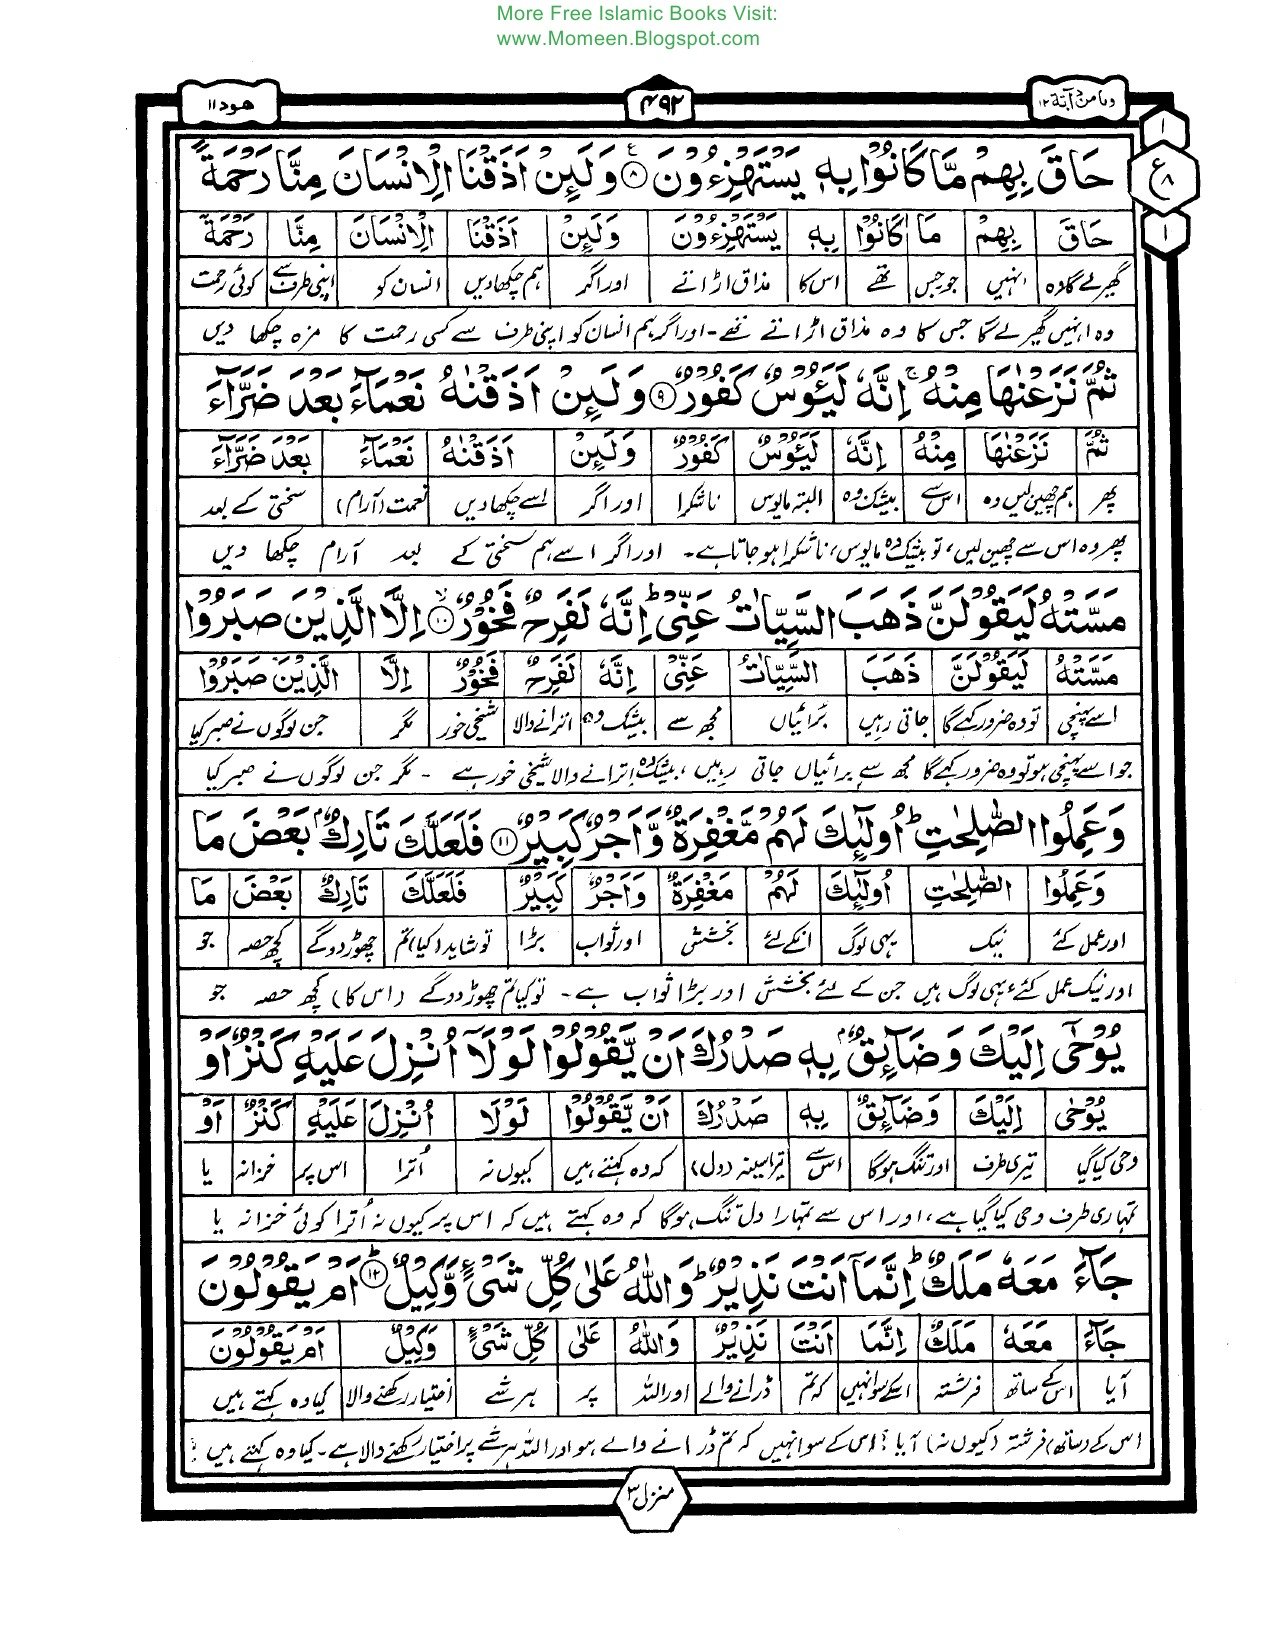 More Free Islamic Books Visit:
www.Momeen.Blogspot.com
ومامن دآبّة ۱۲
۴۹۲
هود ۱۱
۱
ع
۸
۱
حَاقَ بِهِمْ مَّا كَانُوْا بِهٖ يَسْتَهْزِءُوْنَ ۸ وَلَئِنْ اَذَقْنَا الْاِنْسَانَ مِنَّا رَحْمَةً
حَاقَ بِهِمْ مَا كَانُوْا بِهٖ يَسْتَهْزِءُوْنَ وَلَئِنْ اَذَقْنَا الْاِنْسَانَ مِنَّا رَحْمَةً
گھیر لے گا وہ انہیں جو جس تھے اس کا مذاق اڑاتے اور اگر ہم چکھا دیں انسان کو اپنی طرف سے کوئی رحمت
وہ انہیں گھیر لے گا جس کا وہ مذاق اڑاتے تھے ۔ اور اگر ہم انسان کو اپنی طرف سے کسی رحمت کا مزہ چکھا دیں
ثُمَّ نَزَعْنٰهَا مِنْهُ ۚ اِنَّهٗ لَيَئُوْسٌ كَفُوْرٌ ۹ وَلَئِنْ اَذَقْنٰهُ نَعْمَآءَ بَعْدَ ضَرَّآءَ
ثُمَّ نَزَعْنٰهَا مِنْهُ اِنَّهٗ لَيَئُوْسٌ كَفُوْرٌ وَلَئِنْ اَذَقْنٰهُ نَعْمَآءَ بَعْدَ ضَرَّآءَ
پھر ہم چھین لیں وہ اس سے بیشک وہ البتہ مایوس ناشکرا اور اگر اسے چکھا دیں نعمت (آرام) سختی کے بعد
پھر وہ اس سے چھین لیں، تو بیشک وہ مایوس، ناشکرا ہو جاتا ہے ۔ اور اگر اسے ہم سختی کے بعد آرام چکھا دیں
مَسَّتْهُ لَيَقُوْلَنَّ ذَهَبَ السَّيِّاٰتُ عَنِّىْ ۭ اِنَّهٗ لَفَرِحٌ فَخُوْرٌ ۱۰ اِلَّا الَّذِيْنَ صَبَرُوْا
مَسَّتْهُ لَيَقُوْلَنَّ ذَهَبَ السَّيِّاٰتُ عَنِّىْ اِنَّهٗ لَفَرِحٌ فَخُوْرٌ اِلَّا الَّذِيْنَ صَبَرُوْا
اسے پہنچی تو وہ ضرور کہے گا جاتی رہیں برائیاں مجھ سے بیشک وہ اترانے والا شیخی خور مگر جن لوگوں نے صبر کیا
جو اسے پہنچی ہو تو وہ ضرور کہے گا مجھ سے برائیاں جاتی رہیں، بیشک وہ اترانے والا شیخی خور ہے ۔ مگر جن لوگوں نے صبر کیا
وَعَمِلُوا الصّٰلِحٰتِ ۭ اُولٰٓئِكَ لَهُمْ مَّغْفِرَةٌ وَّاَجْرٌ كَبِيْرٌ ۱۱ فَلَعَلَّكَ تَارِكٌۢ بَعْضَ مَا
وَعَمِلُوا الصّٰلِحٰتِ اُولٰٓئِكَ لَهُمْ مَغْفِرَةٌ وَاَجْرٌ كَبِيْرٌ فَلَعَلَّكَ تَارِكٌ بَعْضَ مَا
اور عمل کئے نیک یہی لوگ انکے لئے بخشش اور ثواب بڑا تو شاید (کیا) تم چھوڑ دو گے کچھ حصہ جو
اور نیک عمل کئے، یہی لوگ ہیں جن کے لئے بخشش اور بڑا ثواب ہے ۔ تو کیا تم چھوڑ دو گے (اس کا) کچھ حصہ جو
يُوْحٰٓى اِلَيْكَ وَضَآئِقٌۢ بِهٖ صَدْرُكَ اَنْ يَّقُوْلُوْا لَوْلَآ اُنْزِلَ عَلَيْهِ كَنْزٌ اَوْ
يُوْحٰى اِلَيْكَ وَضَآئِقٌ بِهٖ صَدْرُكَ اَنْ يَّقُوْلُوْا لَوْلَا اُنْزِلَ عَلَيْهِ كَنْزٌ اَوْ
وحی کیا گیا تیری طرف اور تنگ ہوگا اس سے تیرا سینہ (دل) کہ وہ کہتے ہیں کیوں نہ اُترا اس پر خزانہ یا
تمہاری طرف وحی کیا گیا ہے، اور اس سے تمہارا دل تنگ ہوگا کہ وہ کہتے ہیں کہ اس پر کیوں نہ اُترا کوئی خزانہ یا
جَآءَ مَعَهٗ مَلَكٌ ۭ اِنَّمَآ اَنْتَ نَذِيْرٌ ۭ وَاللّٰهُ عَلٰى كُلِّ شَىْءٍ وَّكِيْلٌ ۱۲ اَمْ يَقُوْلُوْنَ
جَآءَ مَعَهٗ مَلَكٌ اِنَّمَا اَنْتَ نَذِيْرٌ وَاللّٰهُ عَلٰى كُلِّ شَىْءٍ وَكِيْلٌ اَمْ يَقُوْلُوْنَ
آیا اس کے ساتھ فرشتہ اسکے سوا نہیں کہ تم ڈرانے والے اور اللہ پر ہر شے اختیار رکھنے والا کیا وہ کہتے ہیں
اس کے (ساتھ) فرشتہ (کیوں نہ) آیا؟ اس کے سوا نہیں کہ تم ڈرانے والے ہو اور اللہ ہر شے پر اختیار رکھنے والا ہے ۔ کیا وہ کہتے ہیں :
منزل ۳